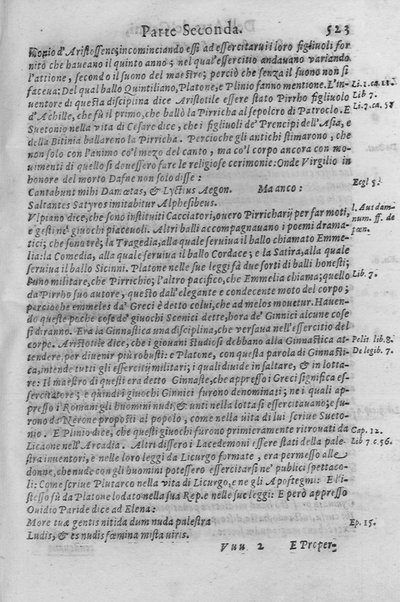 Parte Seconda. 523
mopio d'Aristossene; incominciando essi ad essercitarui i loro figliuoli for
nito che haueano il quinto anno; nel qual'essercitio andauano variando
l'attione, secondo il suono del maestro; perciò che senza il suono non si
facea: Del qual ballo Quintiliano, Platone, e Plinio fanno mentione. L'in-
uentore di questa disciplina dice Aristotile essere stato Pirrho figliuolo
d'Achille, che fù il primo, che ballò la Pirricha al sepolcro di Patroclo. E
Suetonio nella vita di Cesare dice, che i figliuoli de' Prencipi dell'Asia, e
della Bitinia ballarono la Pirricha. Percioche gli antichi stimarono, che
non solo con l'animo co'l mezo del canto, ma co'l corpo ancora con mo-
uimenti di quello si douessero fare le religiose cerimonie: Onde Virgilio in
honore del morto Dafne non solo disse:
Cantabunt mihi Damætas, & Lyctius Aegon. Ma anco:
Saltantes Satyros imitabitur Alphesibeus.
Vlpiano dice, che sono instituiti Cacciatori, ouero Pirricharij per far moti,
e gesti ne' giuochi piaceuoli. Altri balli accompagnauano i poemi drama-
tici; che sono trè; la Tragedia, alla quale seruiua il ballo chiamato Emme-
lia: la Comedia, alla quale seruiua il ballo Cordace; e la Satira, alla quale
seruiua il ballo Sicinni. Platone nelle sue leggi fà due sorti di balli honesti;
l'uno militare, che Pirrichio; l'altro pacifico, che Emmelia chiama; quello
da Pirrho suo autore, questo dall'elegante e condecente moto del corpo;
percioche emmeles da' Greci è detto colui, che ad melos mouetur. Hauen-
do queste poche cose de' giuochi Scenici dette, hora de' Ginnici alcune cose
si diranno. Era la Ginnastica una disciplina, che versaua nell'essercitio del
corpo. Aristotile dice, che i giouani studiosi debbano alla Ginnastica at-
tendere, per diuenir più robusti: e Platone, con questa parola di Ginnasti-
ca, intende tutti gli essercitij militari; i quali diuide in saltare, & in lotta-
re: Il maestro di questi era detto Ginnaste, che appresso i Greci significa es-
sercitatore; e quindi i giuochi Ginnici furono denominati; ne i quali ap-
presso i Romani gli huomini nudi; & unti nella lotta si essercitauano; e fu-
rono da Nerone proposti al popolo, come nella uita di lui scriue Sueto-
nio. E Plinio dice, che questi giuochi furono primieramente ritrouati da
Licaone nell'Arcadia. Altri dissero i Lacedemoni essere stati della pale-
stra inuentori, e nelle loro leggi da Licurgo formate, era permesso alle
donne, che nude con gli huomini potessero essercitarsi ne' publici spettaco-
li: Come scriue Plutarco nella vita di Licurgo, e ne gli Apoftegmi: E l'i-
stesso fù da Platone lodato nella sua Rep. e nelle sue leggi: E però appresso
Ouidio Paride dice ad Elena:
More tuæ gentis nitida dum nuda palestra
Ludis, & es nudis fœmina mista viris.
Vuu 2 E Proper-
Li. 1. ca. 11
Lib 7.
Li 7. ca. 56
Eegl 5.
l. Aut damnum. ff. de
pœn.
Lib. 7.
Polit lib. 8.
De legib. 7.
Cap. 12.
Lib 7 c. 56.
Ep. 15.